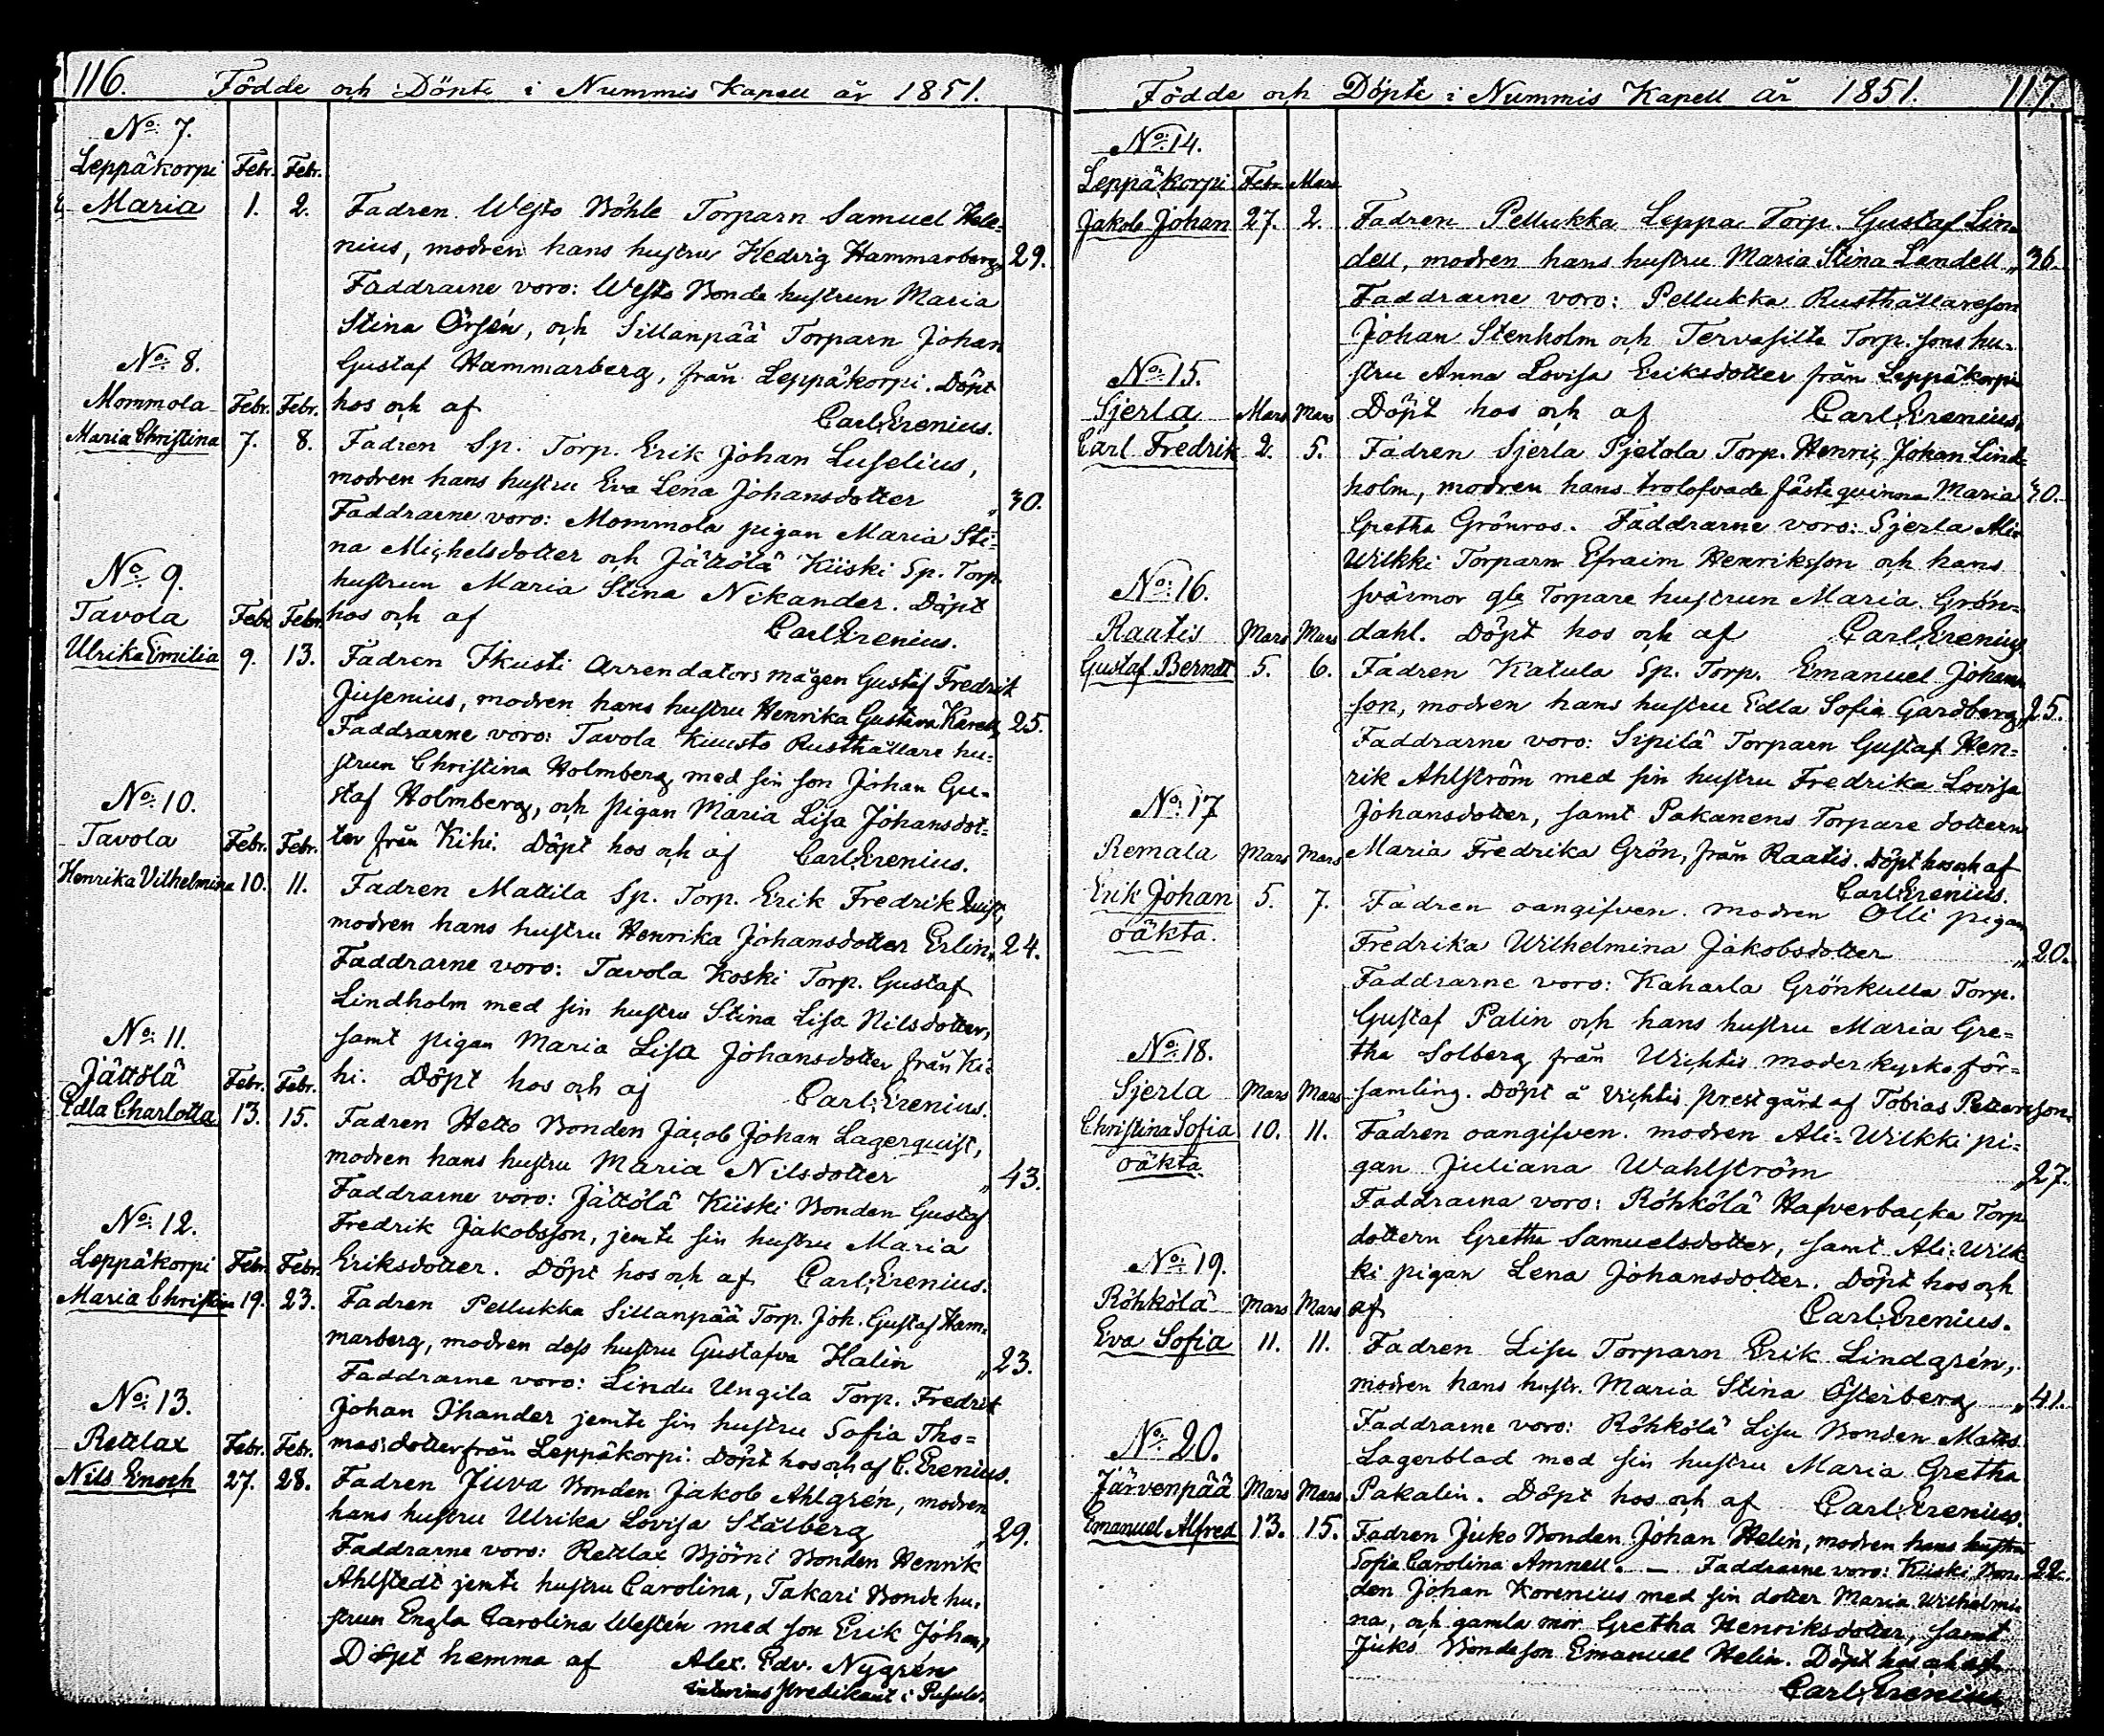 116. Födde och Döpte i Nummis Kapell år 1851.
No: 7.
Leppäkorpi Febr. Febr.
Maria 1. 2. Fadren Westo Böhle Torparn Samuel Hele-
nius, modren hans hustru Hedvig Hammarberg, 29.
Faddrarne voro: Westo Bonde hustrun Maria
Stina Örsén, och Sillanpää Torparn Johan
Gustaf Hammarberg, från Leppäkorpi. Döpt
hos och af Carl Erenius.
No: 8.
Mommola Febr. Febr.
Maria Christina 7. 8. Fadren Sp. Torp. Erik Johan Luselius,
modren hans hustru Eva Lena Johansdotter „ 30.
Faddrarne voro: Mommola pigan Maria Sti-
na Michelsdotter och Jättölä Kiiski Sp. Torp.
hustrun Maria Stina Nikander. Döpt
hos och af Carl Erenius.
No: 9.
Tavola Febr. Febr.
Ulrika Emilia 9. 13. Fadren Ikusti Arrendators mågen Gustaf Fredrik
Jusenius, modren hans hustru Henrika Gustava 25.
Faddrarne voro: Tavola Kuusto Rusthållare hu-
strun Christina Holmberg, med sin son Johan Gu-
staf Holmberg, och pigan Maria Lisa Johansdot-
ter från Kihi. Döpt hos och af Carl Erenius.
No: 10.
Tavola Febr. Febr.
Henrika Vilhelmina 10. 11. Fadren Mattila Sp. Torp. Erik Fredrik Quist,
modren hans hustru Henrika Johansdotter Erlin, 24.
Faddrarne voro: Tavola Koski Torp. Gustaf
Lindholm med sin hustru Stina Lisa Nilsdotter,
samt pigan Maria Lisa Johansdotter från Ki-
hi. Döpt hos och af Carl Erenius.
No: 11.
Jättölä Febr. Febr.
Edla Charlotta 13. 15. Fadren Hetto Bonden Jacob Johan Lagerquist,
modren hans hustru Maria Nilsdotter „ 43.
Faddrarne voro: Jättölä Kiiski Bonden Gustaf
Fredrik Jakobsson, jemte sin hustru Maria
Eriksdotter. Döpt hos och af Carl Erenius.
No: 12.
Leppäkorpi Febr. Febr.
Maria Christina 19. 23. Fadren Pellukka Sillanpää Torp. Joh. Gustaf Ham-
marberg, modren dess hustru Gustafva Halin „ 23.
Faddrarne voro: Lindu Ungila Torp. Fredrik
Johan Ihander jemte sin hustru Sofia Tho-
masdotter från Leppäkorpi. Döpt hos och af C. Erenius.
No: 13.
Retlax Febr. Febr.
Nils Enoch 27. 28. Fadren Juva Bonden Jakob Ahlgrén, modren
hans hustru Ulrika Lovisa Stålberg „ 29.
Faddrarne voro: Retlax Björni Bonden Henrik
Ahlstedt jemte hustru Carolina, Takari Bonde hu-
strun Engla Carolina Westén med son Erik Johan,
Döpt hemma af Alex. Edv. Nygrén
interims predikant i Pusula.
Födde och Döpte i Nummis Kapell år 1851. 117.
No: 14.
Leppäkorpi Febr. Mars
Jakob Johan 27. 2. Fadren Pellukka Leppä Torp. Gustaf Lin-
dell, modren hans hustru Maria Stina Landell „ 36.
Faddrarne voro: Pellukka Rusthållareson
Johan Stenholm och Tervasilta Torp. sons hu-
stru Anna Lovisa Eriksdotter från Leppäkorpi
Döpt hos och af Carl Erenius.
No: 15.
Sjerla Mars Mars
Carl Fredrik 2. 5. Fadren Sjerla Pjetola Torp. Henric Johan Lind-
holm, modren hans trolofvade fästeqvinna Maria „ 30.
Gretha Grönroos. Faddrarne voro: Sjerla Ali-
Wilkki Torparn Efraim Henriksson och hans
svärmor gle Torpare hustrun Maria Grön-
dahl. Döpt hos och af Carl Erenius.
No: 16.
Raatis Mars Mars
Gustaf Berndt 5. 6. Fadren Katula Sp. Torp. Emanuel Johans-
son, modren hans hustru Edla Sofia Gardberg, 25.
Faddrarne voro: Sipilä Torparn Gustaf Hen-
rik Ahlström med sin hustru Fredrika Lovisa
Johansdotter, samt Pakanens Torpare dottern
Maria Fredrika Grön, från Raatis. Döpt hos och af
Carl Erenius.
No: 17
Remala Mars Mars
Erik Johan 5. 7. Fadren oangifven. modren Olli pigan
oäkta. Fredrika Wilhelmina Jakobsdotter „ 20.
Faddrarne voro: Kaharla Grönkulla Torp.
Gustaf Palin och hans hustru Maria Gre-
tha Solberg från Wichtis moderkyrko för-
samling. Döpt å Vichtis prestgård af Tobias Petterson.
No: 18.
Sjerla Mars Mars
Christina Sofia 10. 11. Fadren oangifven. modren Ali-Wilkki pi-
oäkta. gan Juliana Wahlström „ 27.
Faddrarna voro: Röhkölä Hafverbacka Torp
dottern Gretha Samuelsdotter, samt Ali-Wilk-
ki pigan Lena Johansdotter. Döpt hos och
af Carl Erenius.
No: 19.
Röhkölä Mars Mars
Eva Sofia 11. 11. Fadren Lisu Torparn Erik Lindgrén,
modren hans hustr. Maria Stina Österberg „ 41.
Faddrarne voro: Röhkölä Lisu Bonden Matts
Lagerblad med sin hustru Maria Gretha
Pakalin. Döpt hos och af Carl Erenius.
No: 20.
Järvenpää Mars Mars
Emanuel Alfred 13. 15. Fadren Juko Bonden Johan Helin, modren hans hustru
Sofia Carolina Amnell. — Faddrarne voro: Kiiski Bon- 22.
den Johan Korenius med sin dotter Maria Wilhelmi-
na, och gamla mor Gretha Henriksdotter, samt
Juko Bondeson Emanuel Helin. Döpt hos och af
Carl Erenius